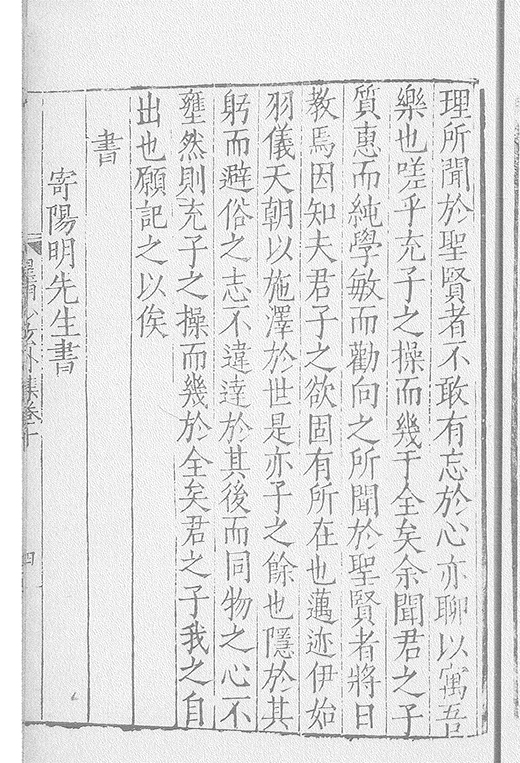 理所聞於聖賢者不敢有忘於心亦聊以寓吾
樂也嗟乎充子之操而幾于全矣余聞君之子
質惠而純學敏而勸向之所聞於聖賢者將日
教焉因知夫君子之欲固有所在也邁迹伊始
羽儀天朝以施澤於世是亦子之餘也隱於其
躬而避俗之志不違達於其後而同物之心不
壅然則充子之操而幾於全矣君之子我之自
出也願記之以俟
書
寄陽明先生書
外集卷十
四